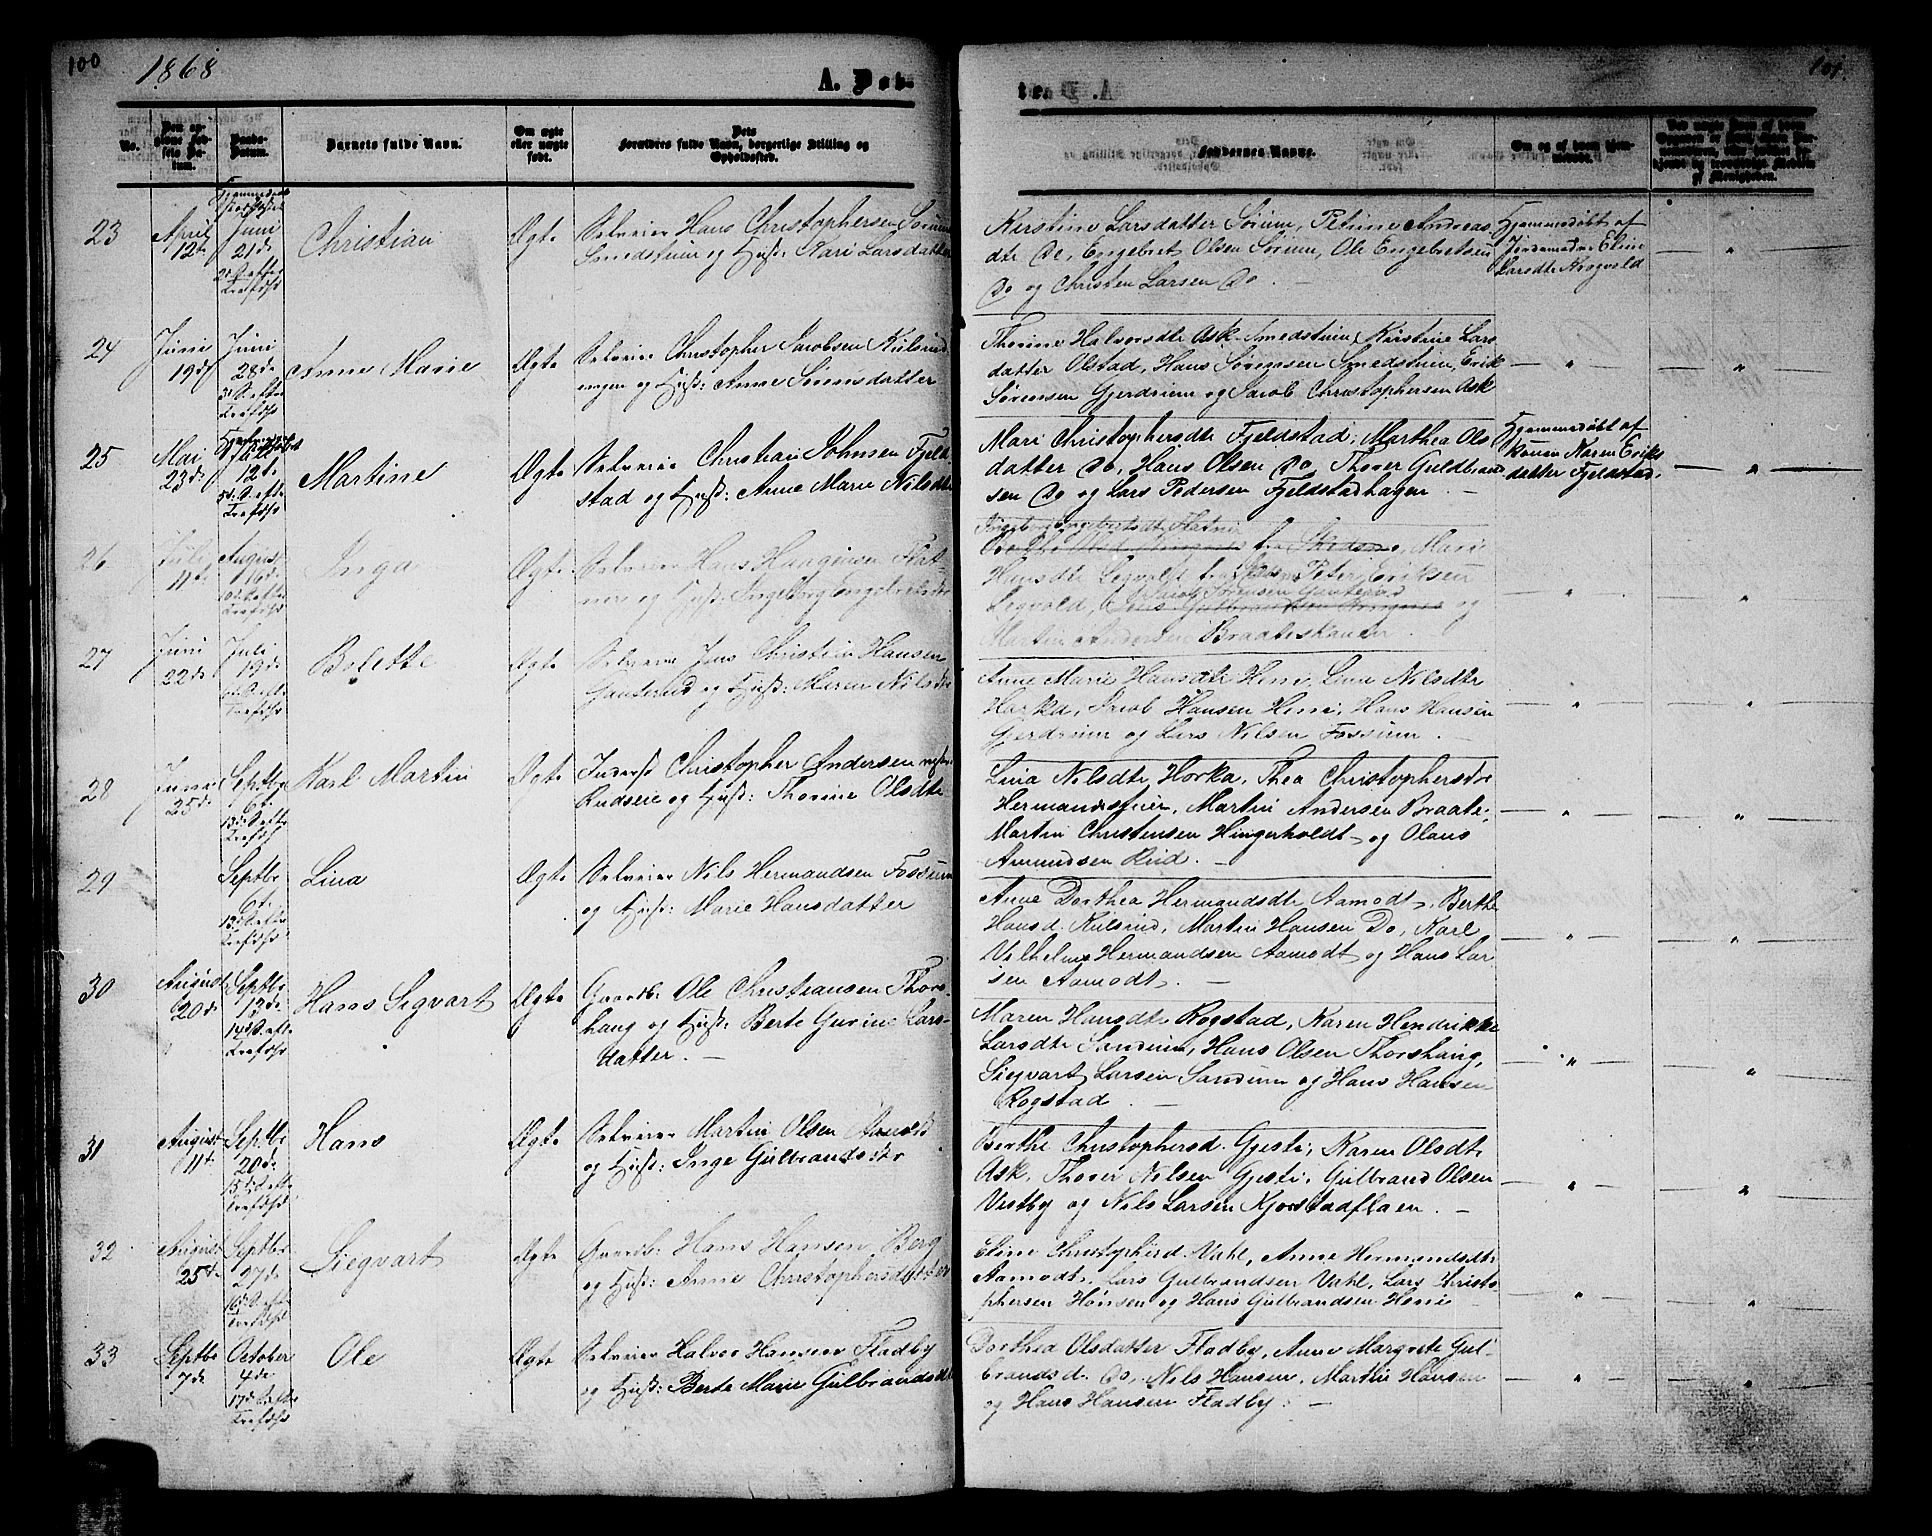 100
1868
A. Døb-
te
101.
No.
Den an-
givne Fød-
sels Da-
tum.
Daabs-
Datum.
Barnets fulde Navn.
Om ægte
eller uægte
født.
Dets
Forældres fulde Navn, borgerlige Stilling og
Opholdssted.
Faddernes Navne.
Om og af hvem hjem-
medøbt.
23
April
12te
Juni
21de
2de S. efter
Trefdhs
Christian
Ægte
Selveier Hans Christophersen Sørum
Smedstuen og Hust: Mari Larsdatter
Kirstine Larsdatter Sørum, Petrine Andreas
dtr Do, Engebret Olsen Sørum, Ole Engebretsen
Do og Christen Larsen Do. —
Hjemmedøbt af
Jordemodr Eline
Larsdtr Krogvold
24
Juni
19de
Juni
28de
3de S. efter
Trefdhs
Anne Marie
Ægte
Selveier Christopher Jacobsen Kulsrud
engen og Hust: Anne Sørensdatter
Thorine Halvorsdtr Ask-Smedstuen, Kirstine Lars
datter Olstad, Hans Sørensen Smedstuen, Erik
Sørensen Gjerdrum og Jacob Christophersen Ask
25
Mai
23de
12te
5te S. efter
Trefdhs
Martine
Ægte
Selveier Christian Johnsen Fjeld
stad og Hust: Anne Marie Nilsdtr
Mari Christophersdtr Fjeldstad, Marthea Ols
datter Do, Hans Olsen Do, Thorer Guldbrand
sen Do og Lars Pedersen Fjeldstadhagen. —
Hjemmedøbt af
Konen Karen Eriks
datter Fjeldstad.
26
Juli
11te
August
16de
10de S. efter
Trefdhs
Inga
Ægte
Selveier Hans Haagensen Flat-
ner og Hust: Ingeborg Engebretsdtr
Ingeborg Engebretsdtr Flatner
fra Skedsmo, Marie
Hansdtr Legvold fra Peter Eriksen
Jacob Sørensen Gauterud
Legvold, og
Martin Andersen Braateskanten.
27
Juni
22de
Juli
19de
6te S. efter
Trefdhs
Bolette
Ægte
Selveier Jens Christian Hansen
Gauterud og Hust: Maren Nilsdtr
Anne Marie Hansdtr Heni, Line Nilsdtr
Horka, Jacob Hansen Heni, Hans Hansen
Gjerdrum og Lars Nilsen Fossum. —
28
Juni
25de
Septbr
6te
13de S. efter
Trefdhs
Karl Martin
Ægte
Inderst Christopher Andersen
Rudseie og Hust: Thorine Olsdtr
Lina Nilsdtr Horka, Thea Christophersdtr
Hermandseier, Martin Andersen Braate,
Martin Christensen Hingerholdt og Olaus
Amundsen Rud. —
29
Septbr
6te
13de S. efter
Trefdhs
Lina
Ægte
Selveier Nils Hermandsen Fossum
og Hust: Marie Hansdatter
Anne Dorthea Hermandsdtr Aamodt, Berthe
Hansd. Kulsrud, Martin Hansen Do, Karl
Vilhelm Hermandsen Aamodt og Hans Lar
sen Aamodt. —
30
August
20de
Septbr
13de
14de S. efter
Trefdhs
Hans Segvart
Ægte
Gaardb. Ole Christiansen Thors-
haug og Hust: Berte Gurine Lars-
datter. —
Maren Hansdtr Rogstad, Karen Hendrikke
Larsdtr Sandum, Hans Olsen Thorshaug,
Siegvart Larsen Sandum og Hans Hansen
Rogstad. —
31
August
11te
Septbr
20de
15de S. efter
Trefdhs
Hans
Ægte
Selveier Martin Olsen
og Hust: Inge Gulbrandsdtr
Berthe Christophersd. Gjesti, Karen Olsdtr
Ask, Thorer Nilsen Gjesti, Gulbrand Olsen
Vestby og Nils Larsen Kjorstadflaen. —
32
August
25de
Septbr
27de
16de S. efter
Trefdhs
Siegvart
Ægte
Gaardb. Hans Hansen Berg
og Hust: Anne Christophersdatter
Eline Christophersd. Vahl, Anne Hermandsdtr
Aamodt, Lars Gulbrandsen Vahl, Lars Christo
phersen Hønsen og Hans Gulbrandsen Heni —
33
Septbr
7de
October
4de
17de S. efter
Trefdhs
Ole
Ægte
Selveier Halvor Hansen Fladby
og Hust: Berte Marie Gulbrandsdtr
Dorthea Olsdatter Fladby, Anne Margrete Gul-
brandsd. Do, Nils Hansen, Marthe Hansen
og Hans Hansen Fladby. —